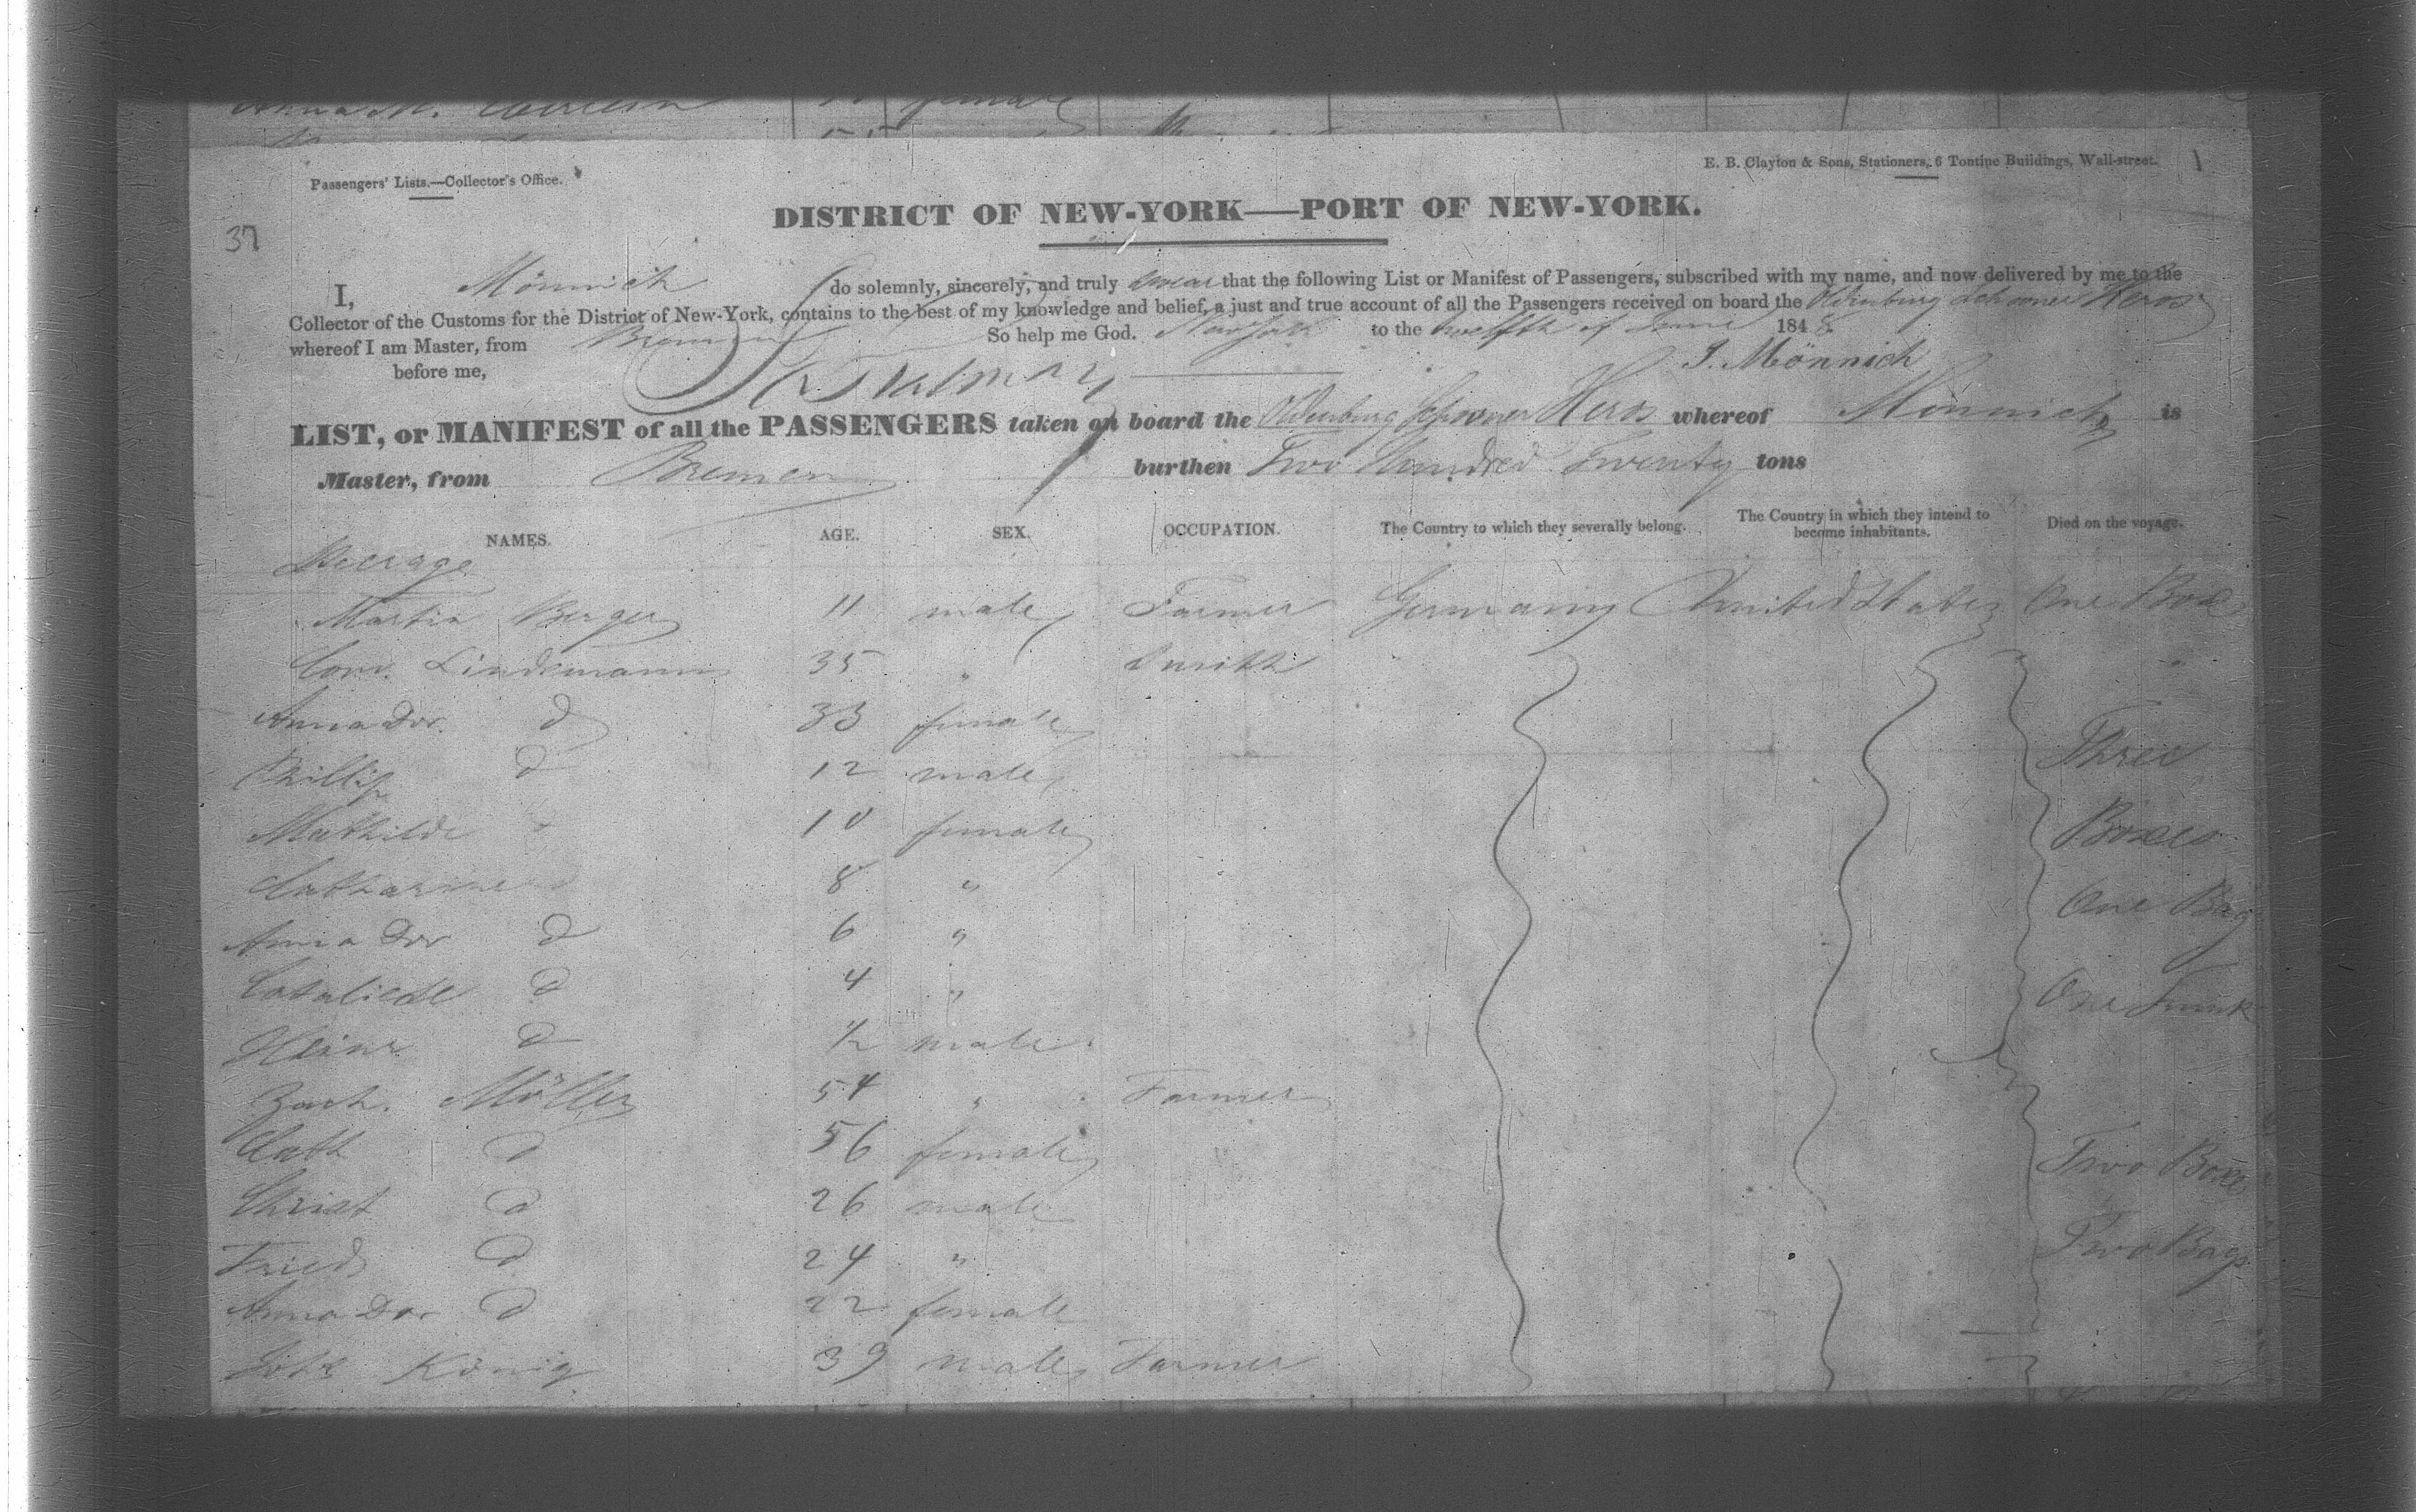 Anna M.
female
Passengers' Lists.—Collector's Office.
E. B. Clayton & Sons, Stationers, 6 Tontine Buildings, Wall-street.
DISTRICT OF NEW-YORK——PORT OF NEW-YORK.
37
I, Mönnich do solemnly, sincerely, and truly swear that the following List or Manifest of Passengers, subscribed with my name, and now delivered by me to the
Collector of the Customs for the District of New-York, contains to the best of my knowledge and belief, a just and true account of all the Passengers received on board the Oldenburg Schooner Heros
whereof I am Master, from Bremen So help me God. New York to the twelfth of June 1848
before me, J. Mönnich
LIST, or MANIFEST of all the PASSENGERS taken on board the Oldenburg Schooner Heros whereof Mönnich is
Master, from Bremen burthen Two Hundred Twenty tons
NAMES. AGE. SEX. OCCUPATION. The Country to which they severally belong. The Country in which they intend to become inhabitants. Died on the voyage.
Steerage
Martin Berger 11 male Farmer Germany United States One Box
Conr. Lindemann 35 " Smith "
Anna Dor. d 33 female
Phillip d 12 male Three
Mathilde 10 female Boxes
Catharine 8 " One Bag
Anna Dor d 6 "
d 4 " One Trunk
Heinr. d 1/2 male
Zach. Möller 54 " Farmer
Cath d 56 female Two Boxes
Christ d 26 male
Fried d 24 " Two Bags
Anna Dor d 22 female
Joh König 39 male Farmer